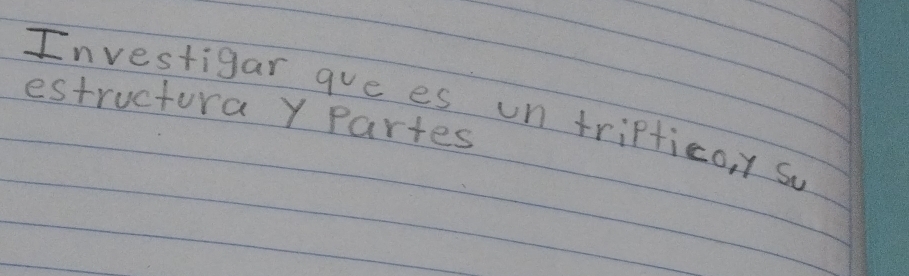 Investigar que es un triptico, y su
estructura y Partes